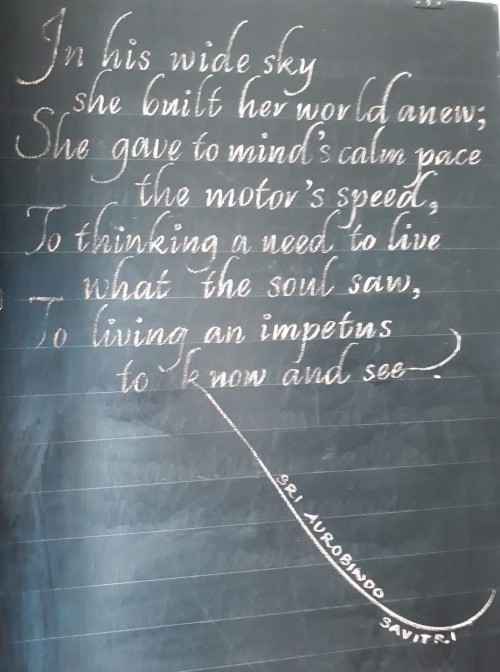 In his wide sky
she built her world anew;
She gave to mind's calm pace
the motor's speed,
To thinking a need to live
what the soul saw,
To living an impetus
to know and see.
SRI AUROBINDO
SAVITRI